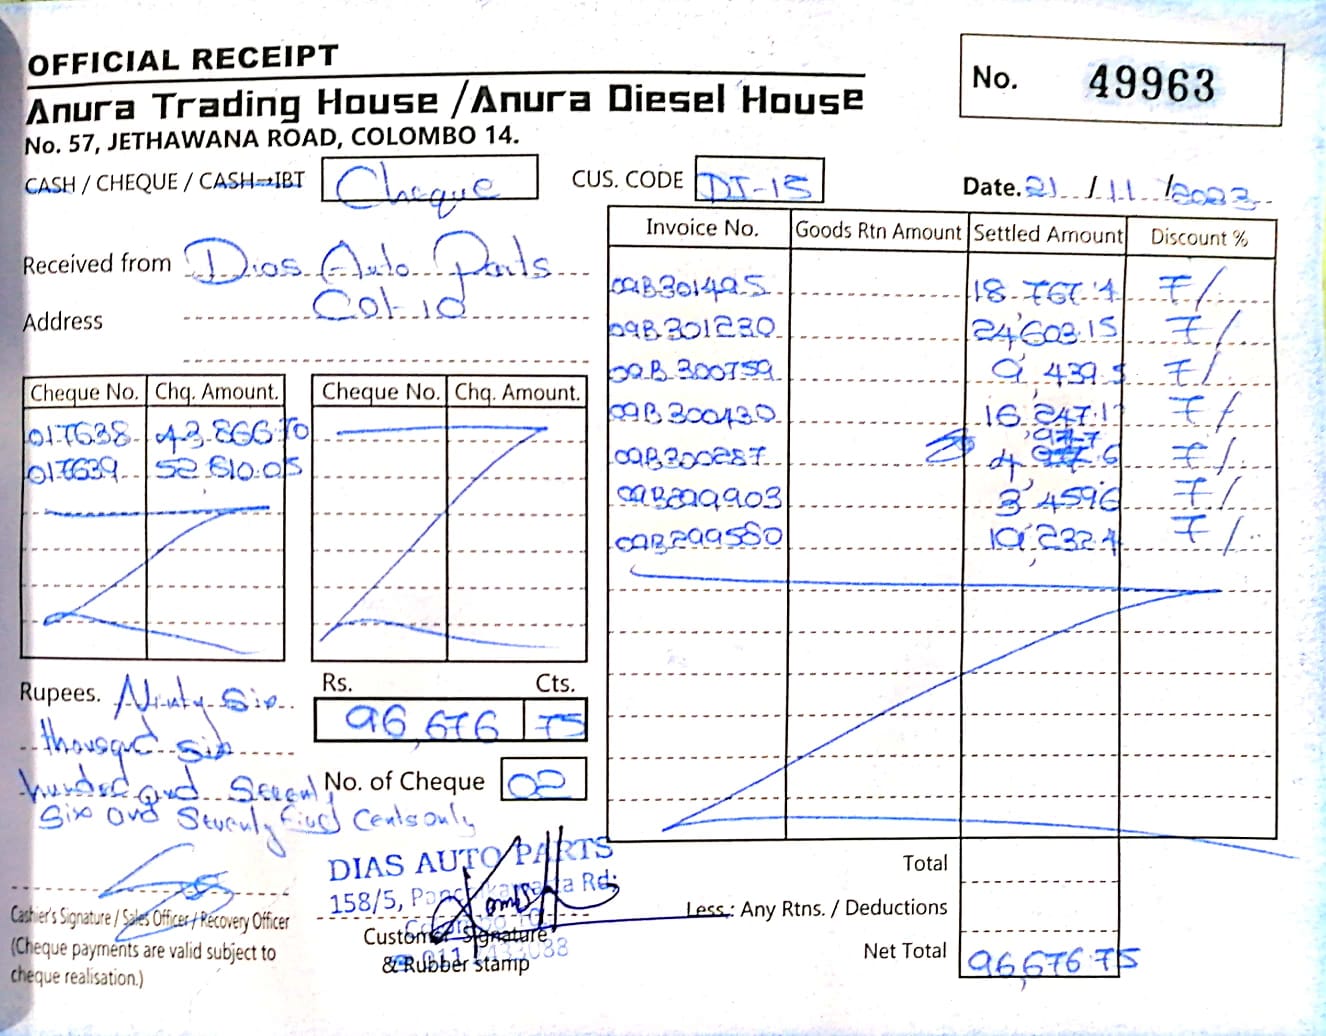 OFFICIAL RECEIPT
No. 49963
Anura Trading House / Anura Diesel House
No. 57, JETHAWANA ROAD, COLOMBO 14.
CASH / CHEQUE / CASH→IBT Cheque
CUS. CODE DI-15
Date. 21 / 11 / 2023
Received from Dias Auto Parts
Address Col-10
Invoice No. Goods Rtn Amount Settled Amount Discount %
09B301495 18 767.1 7/
09B301230 24,603.15 7/
09B300759 9,439.5 7/
09B300430 16,247.1 7/
09B300287 4 977.6 7/
09B299903 3,459.6 7/
09B299580 19,232.4 7/
Cheque No. Chq. Amount. Cheque No. Chq. Amount.
017638 43,866.70
017639 52 810.05
Rs. Cts.
96,676 75
Rupees. Ninty Six
thousand six
hundred and Seventy
Six and Seventy five Cents only
No. of Cheque 02
DIAS AUTO PARTS
158/5,
Cashier's Signature / Sales Officer / Recovery Officer
(Cheque payments are valid subject to
cheque realisation.)
Customer Signature
& Rubber stamp
Total
Less.: Any Rtns. / Deductions
Net Total 96,676.75